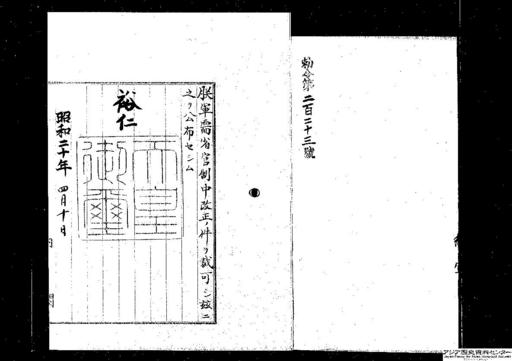 勅令第二百二十三號
朕軍需省官制中改正ノ件ヲ裁可シ茲ニ
之ヲ公布セシム
裕仁
天皇御璽
昭和二十年四月十日
内閣
アジア歴史資料センター